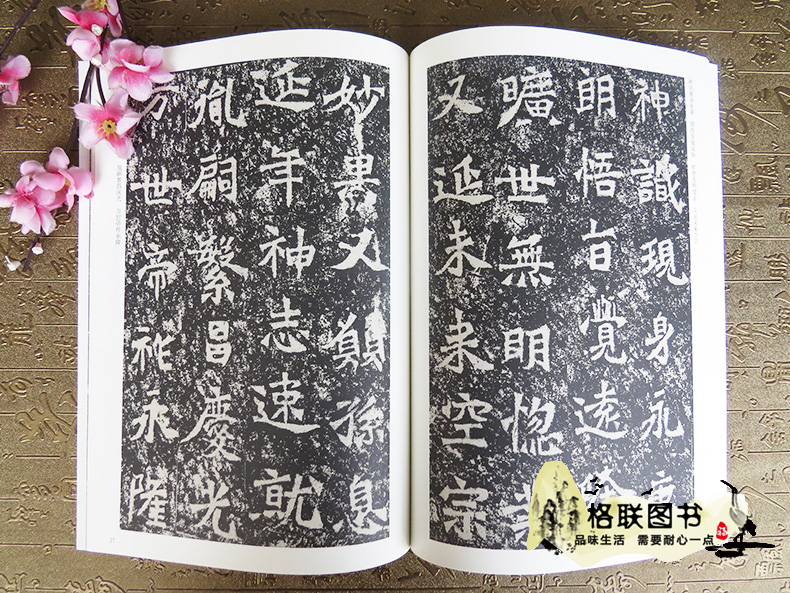 神識現身永
朗悟旨覺遠
曠世無明惚
又延未來空宗
妙果又願孫息
延年神志速就
胤嗣繁昌慶光
万世帝祚永隆
格联图书
品味生活 需要耐心一点